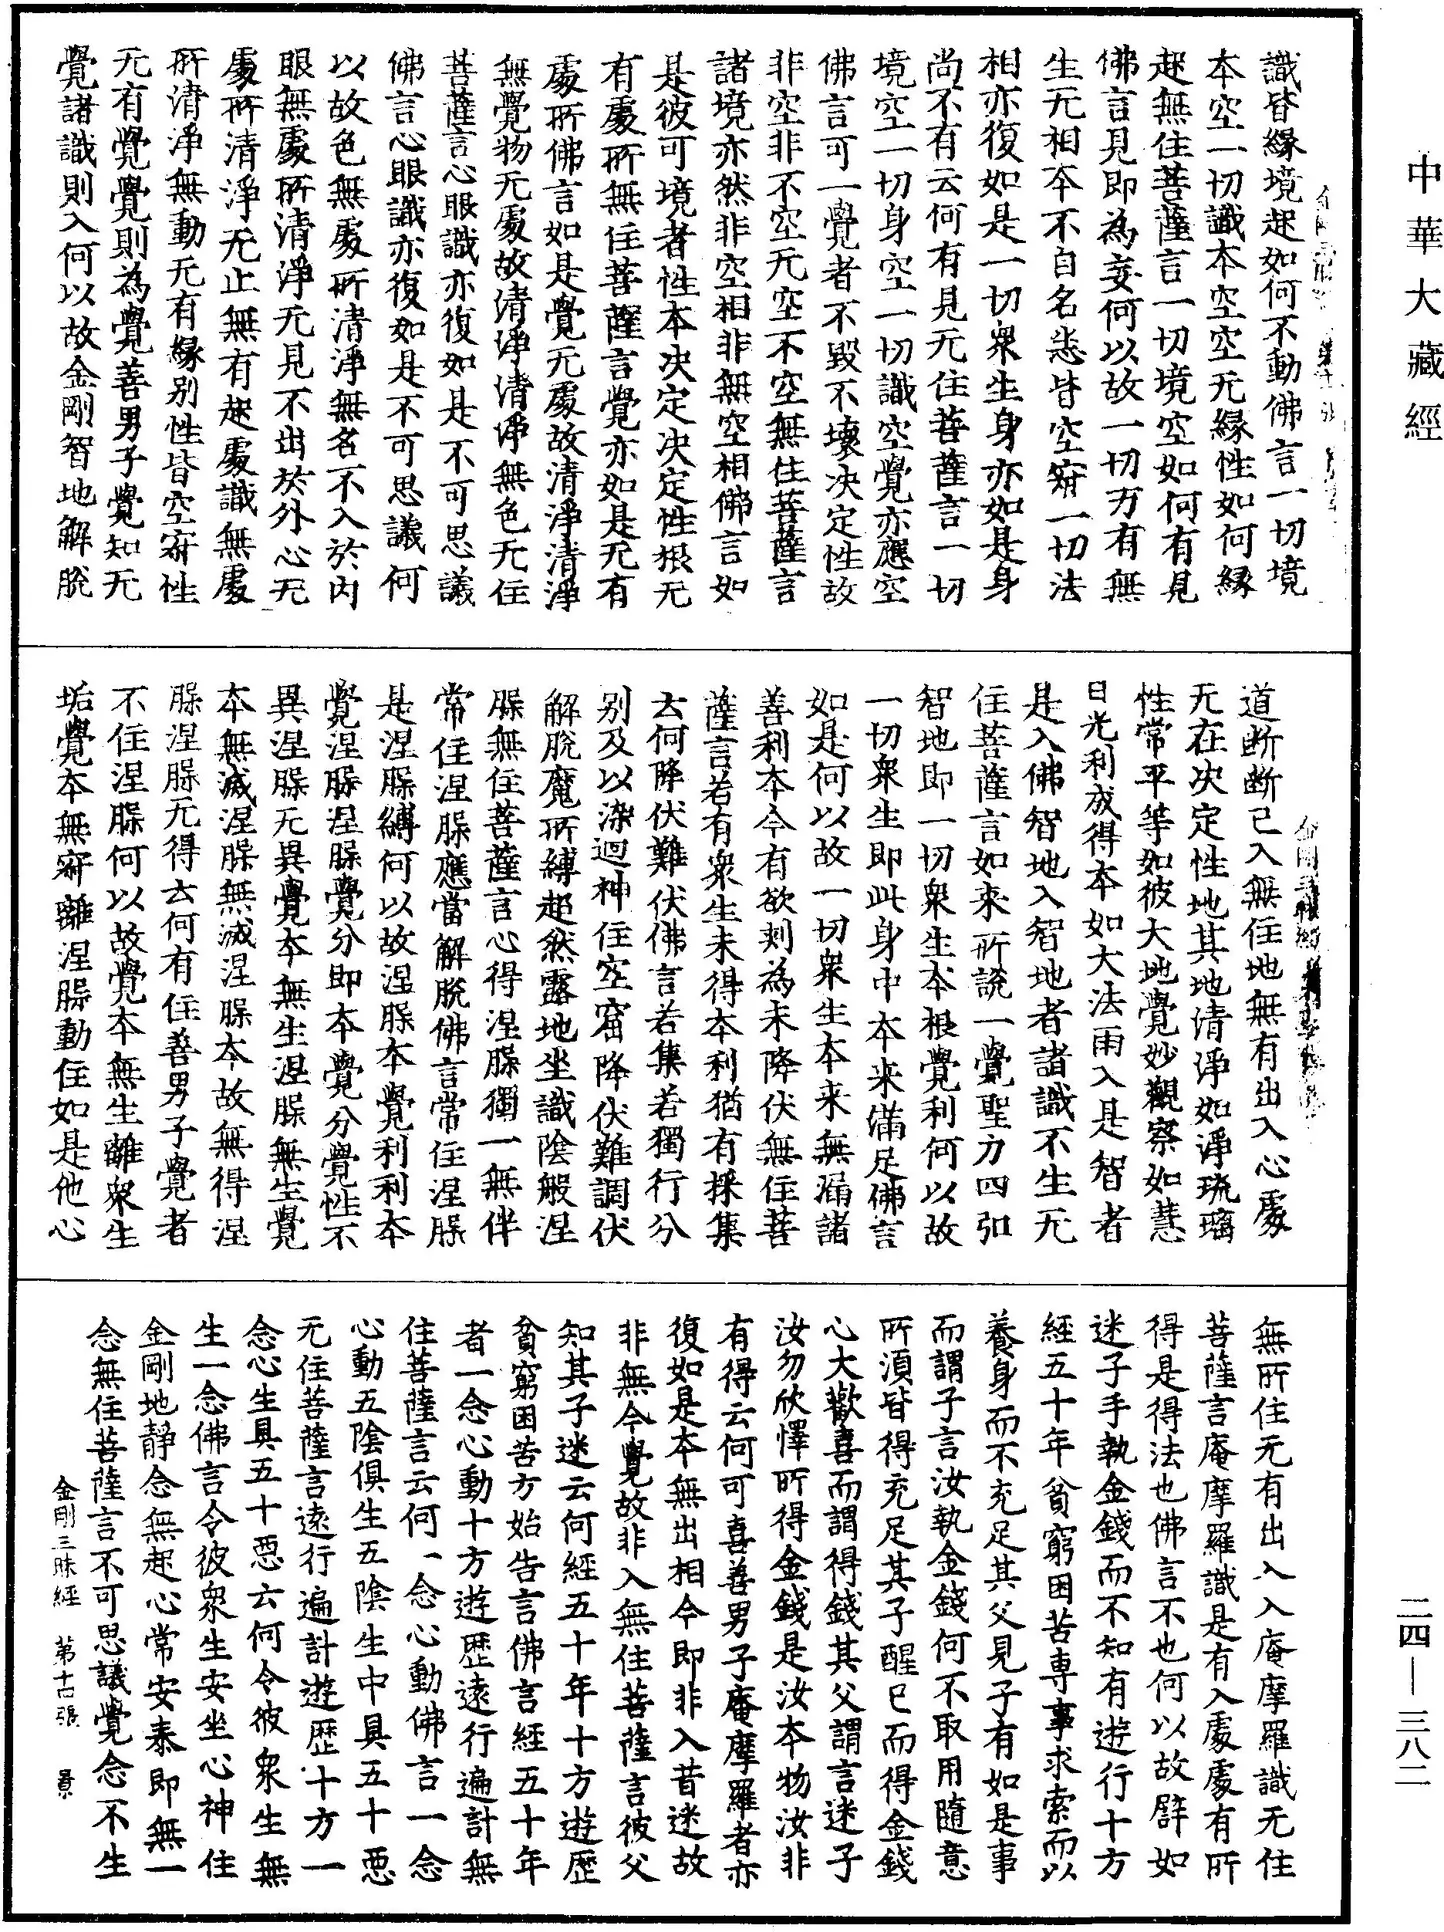 中華大藏經
識皆緣境起如何不動佛言一切境
本空一切識本空空无緣性如何緣
起無住菩薩言一切境空如何有見
佛言見即為妄何以故一切万有無
生无相本不自名悉皆空㝷一切法
相亦復如是一切衆生身亦如是身
尚不有云何有見无住菩薩言一切
境空一切身空一切識空覺亦應空
佛言可一覺者不毀不壞决定性故
非空非不空无空不空無住菩薩言
諸境亦然非空相非無空相佛言如
是彼可境者性本决定决定性根无
有處所無住菩薩言覺亦如是无有
處所佛言如是覺无處故清淨清淨
無覺物无處故清淨清淨無色无住
菩薩言心眼識亦復如是不可思議
佛言心眼識亦復如是不可思議何
以故色無處所清淨無名不入於内
眼無處所清淨无見不出於外心无
處所清淨无止無有起處識無處
所清淨無動无有緣别性皆空㝷性
无有覺覺則為覺善男子覺知无
覺諸識則入何以故金剛智地解脫
道断断已入無住地無有出入心處
无在决定性地其地清淨如淨琉璃
性常平等如彼大地覺妙觀察如慧
日光利成得本如大法雨入是智者
是入佛智地入智地者諸識不生无
住菩薩言如来所説一覺聖力四弘
智地即一切衆生本根覺利何以故
一切衆生即此身中本来滿足佛言
如是何以故一切衆生本来無漏諸
善利本今有欲刾為未降伏無住菩
薩言若有衆生未得本利猶有採集
去何降伏難伏佛言若集若獨行分
别及以染迴神住空窟降伏難調伏
解脫魔所縛超然露地坐識陰般涅
脲無住菩薩言心得涅脲獨一無伴
常住涅脲應當解脫佛言常住涅脲
是涅脲縛何以故涅脲本覺利利本
覺涅脲涅脲覺分即本覺分覺性不
異涅脲无異覺本無生涅脲無生覺
本無滅涅脲無滅涅脲本故無得涅
脲涅脲无得去何有住善男子覺者
不住涅脲何以故覺本無生離衆生
垢覺本無㝷離涅脲動住如是他心
無所住无有出入入庵摩羅識无住
菩薩言庵摩羅識是有入處處有所
得是得法也佛言不也何以故譬如
迷子手執金錢而不知有遊行十方
經五十年貧窮困苦専事求索而以
養身而不充足其父見子有如是事
而謂子言汝執金錢何不取用隨意
所須皆得充足其子醒已而得金錢
心大歡喜而謂得錢其父謂言迷子
汝勿欣懌所得金錢是汝本物汝非
有得云何可喜善男子庵摩羅者亦
復如是本無出相今即非入昔迷故
非無今覺故非入無住菩薩言彼父
知其子迷云何經五十年十方遊歷
貧窮困苦方始告言佛言經五十年
者一念心動十方遊歷遠行遍計無
住菩薩言云何一念心動佛言一念
心動五陰俱生五陰生中具五十惡
无住菩薩言遠行遍計遊歷十方一
念心生具五十惡云何令彼衆生無
生一念佛言令彼衆生安坐心神住
金剛地静念無起心常安泰即無一
念無住菩薩言不可思議覺念不生
金剛三昧經　第十四張　景
二四—三八二